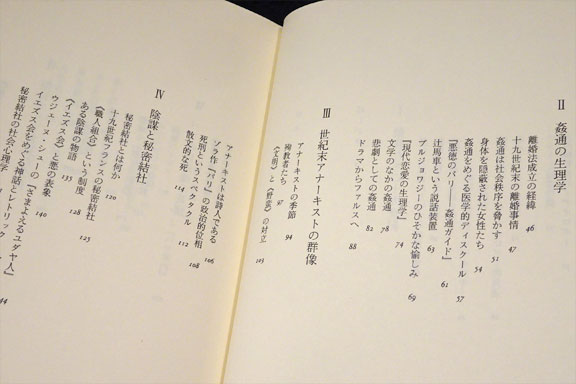 II 姦通の生理学
離婚法成立の経緯 46
十九世紀末の離婚事情 47
姦通は社会秩序を脅かす 51
身体を隠蔽された女性たち 54
姦通をめぐる医学的ディスクール 57
『悪徳のパリ――姦通ガイド』 61
辻馬車という説話装置 63
ブルジョワジーのひそかな愉しみ 69
『現代恋愛の生理学』 74
文学のなかの姦通 78
悲劇としての姦通 82
ドラマからファルスへ 88
III 世紀末アナーキストの群像
アナーキストの季節 94
殉教者たち 97
《文明》と《野蛮》の対立 103
アナーキストは詩人である 106
ゾラ作『パリ』の政治的位相 108
死刑というスペクタクル 112
散文的な死 114
IV 陰謀と秘密結社
秘密結社とは何か 120
十九世紀フランスの秘密結社 123
《職人組合》という制度 128
ある陰謀の物語 133
《イエズス会》と悪の表象
ウジェーヌ・シューの『さまよえるユダヤ人』 140
イエズス会をめぐる神話とレトリック
秘密結社の社会心理学